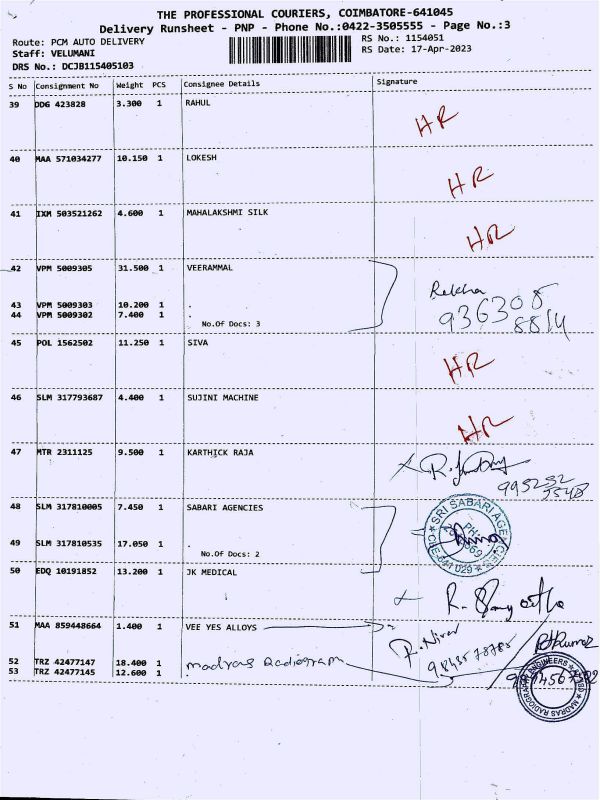 THE PROFESSIONAL COURIERS, COIMBATORE-641045
Delivery Runsheet - PNP - Phone No.:0422-3505555 - Page No.:3
Route: PCM AUTO DELIVERY RS No.: 1154051
Staff: VELUMANI RS Date: 17-Apr-2023
DRS No.: DCJB115405103
S No Consignment No Weight PCS Consignee Details Signature
39 DDG 423828 3.300 1 RAHUL
HR
40 MAA 571034277 10.150 1 LOKESH
HR
41 IXM 503521262 4.600 1 MAHALAKSHMI SILK
HR
42 VPM 5009305 31.500 1 VEERAMMAL
Rekha
43 VPM 5009303 10.200 1 .
44 VPM 5009302 7.400 1 .
936305
8814
No.Of Docs: 3
45 POL 1562502 11.250 1 SIVA
HR
46 SLM 317793687 4.400 1 SUJINI MACHINE
HR
47 MTR 2311125 9.500 1 KARTHICK RAJA
48 SLM 317810005 7.450 1 SABARI AGENCIES
SRI SABARI AGENCIES
49 SLM 317810535 17.050 1 .
No.Of Docs: 2
50 EDQ 10191852 13.200 1 JK MEDICAL
51 MAA 859448664 1.400 1 VEE YES ALLOYS
52 TRZ 42477147 18.400 1 madras Radiogram
53 TRZ 42477145 12.600 1
MADRAS RADIOGRAPH ENGINEERS